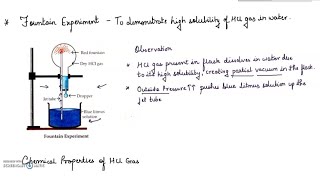 * Fountain Experiment - To demonstrate high solubility of HCl gas in water.
Red fountain
Dry HCl gas
Dropper
Jet tube
Blue litmus
solution
Fountain Experiment
Observation
* HCl gas present in flask dissolves in water due
to its high solubility, creating partial vacuum in the flask.
* Outside Pressure ↑↑ pushes blue litmus solution up the
jet tube
Chemical Properties of HCl Gas